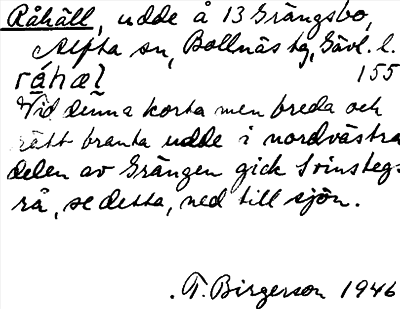 Råhäll, udde å 13 Grängsbo,
Alfta sn, Bollnäs tg, Gävl. l.
råhæl 155
Vid denna korta men breda och
rätt branta udde i nordvästra
delen av Grängen gick Svinstegs-
rå, se detta, ned till sjön.
T. Birgerson 1946